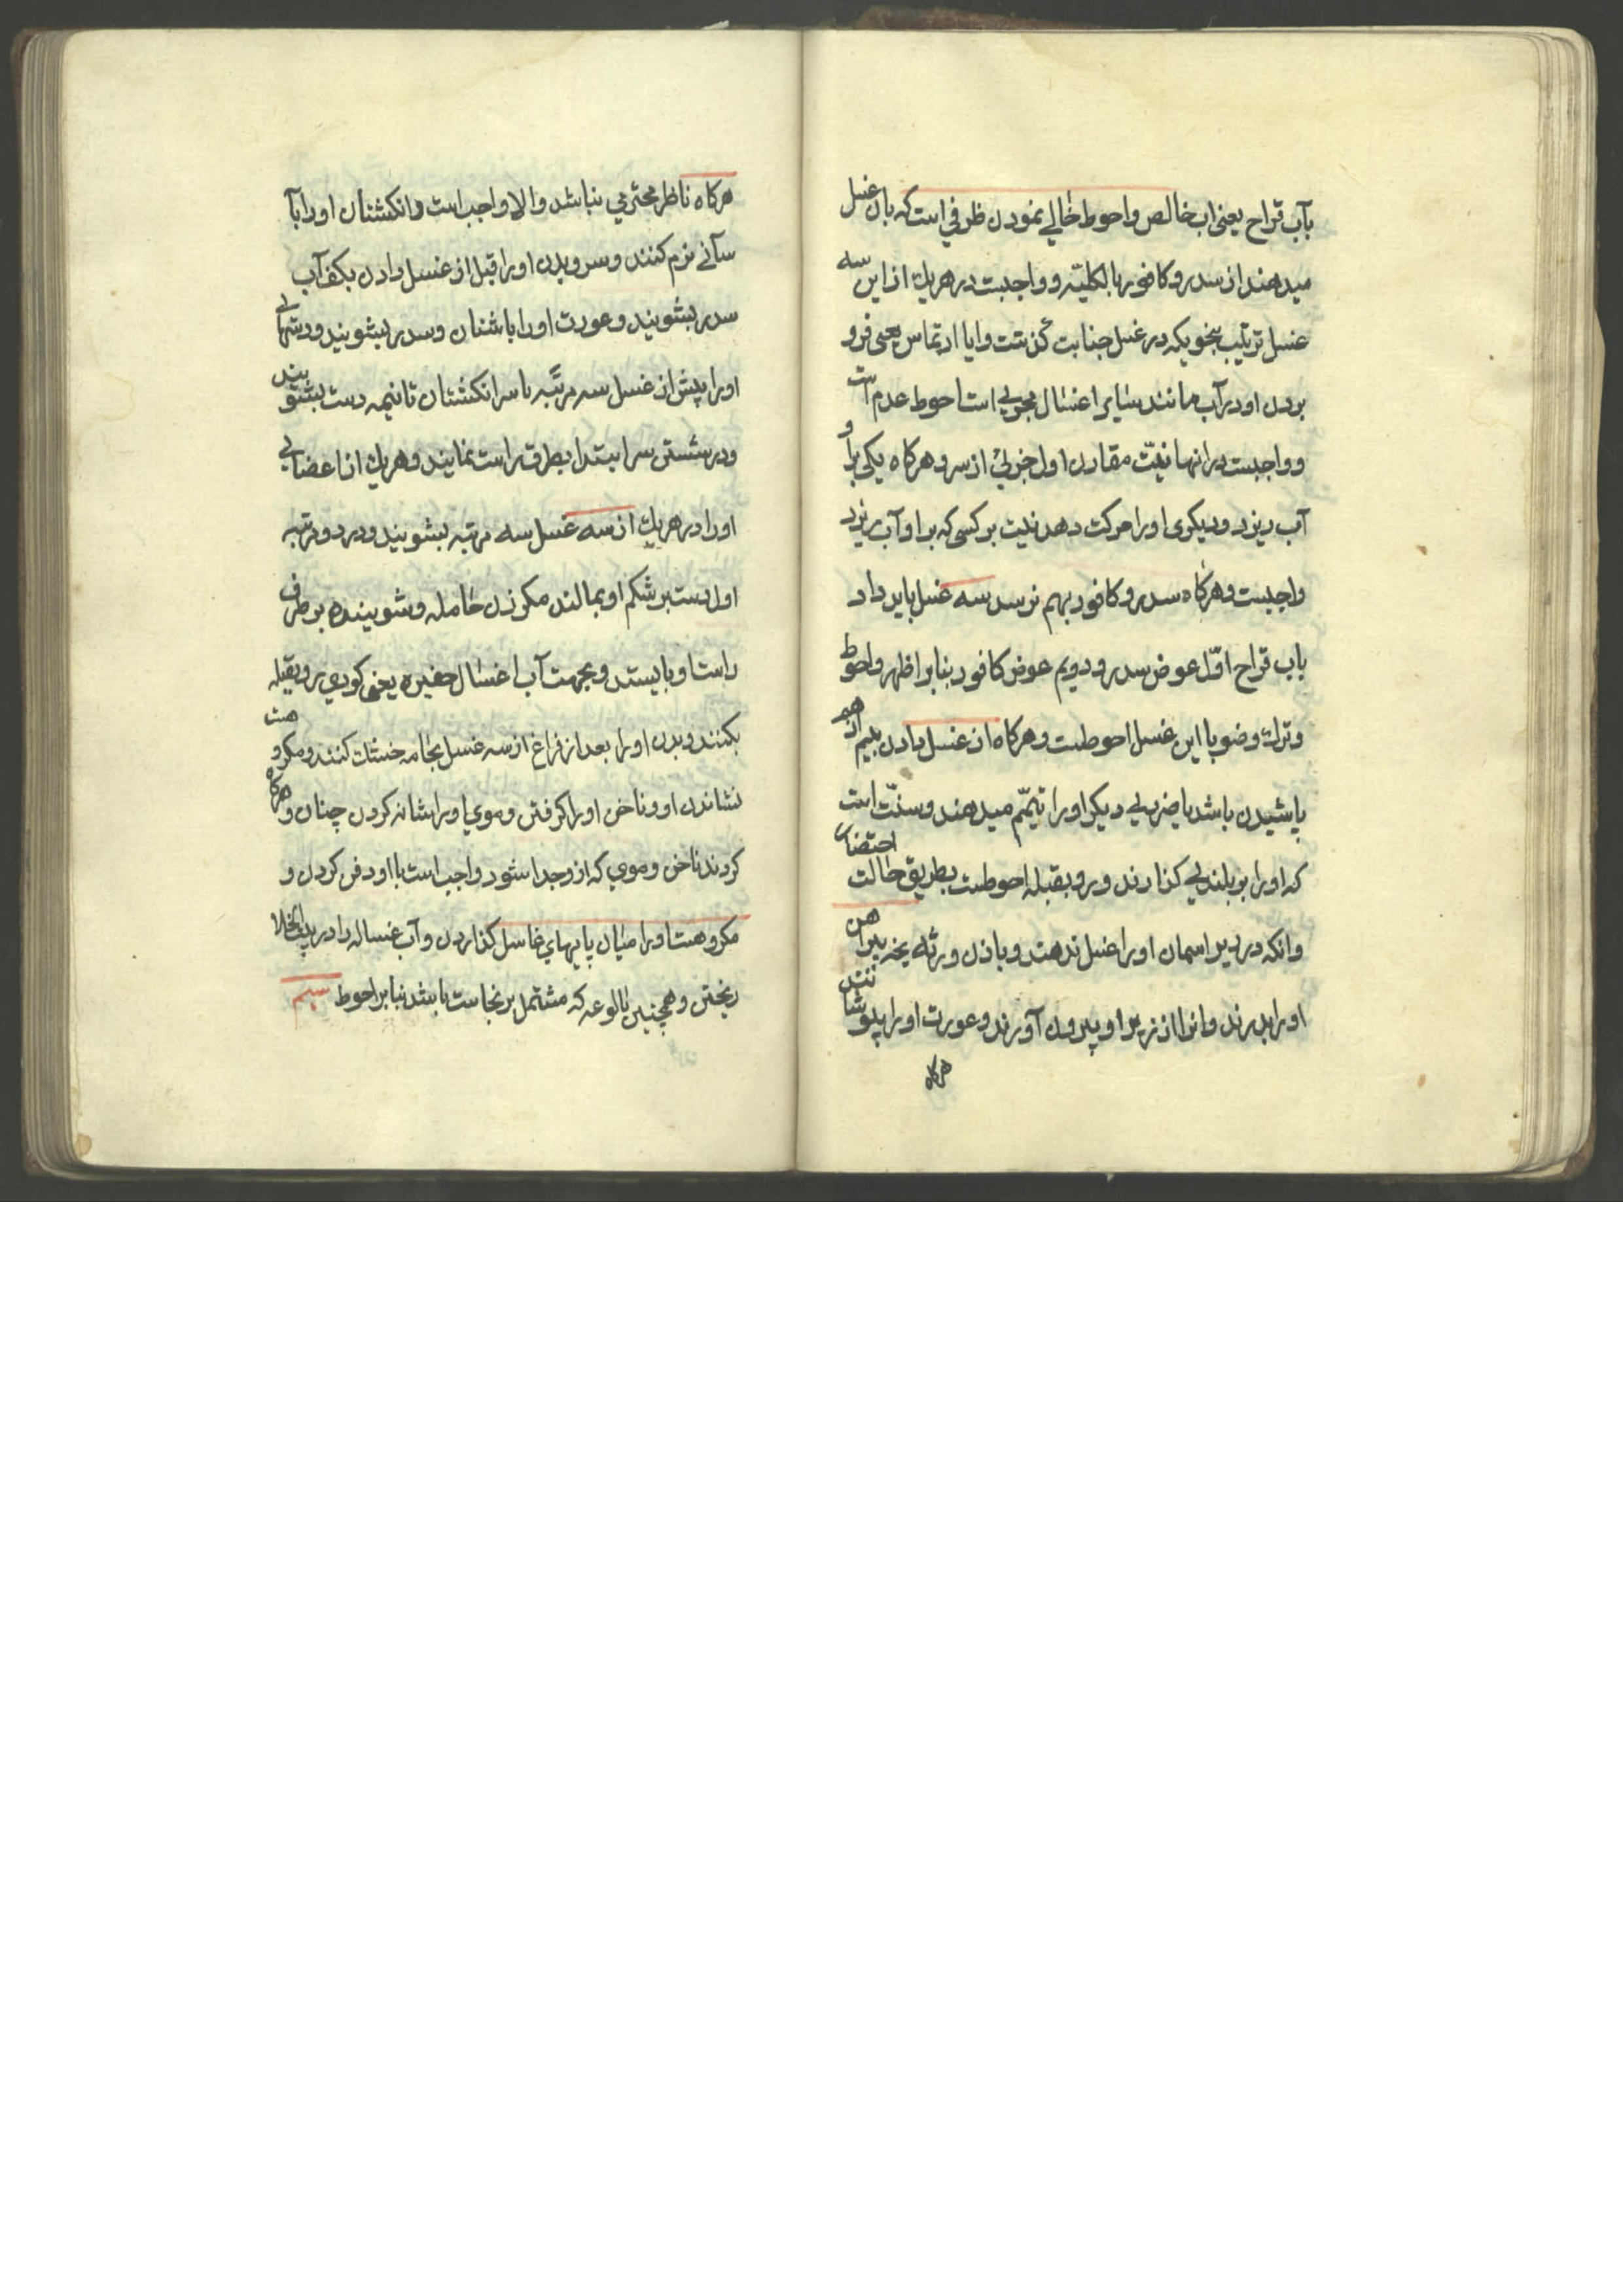 بآب قراح یعنی اب خالص واحوط خالی نمودن ظرفی است که بان غسل
میدهند از سدر و کافور بالکلیّه و واجبت در هریك از این سه
غسل ترتیب بنحویکه در غسل جنابت گذشت وایا ارتماس یعنی فرو
بردن او در آب مانند سایر اغسال مجزی است احوط عدم است
و واجبست در انها نیّت مقارن اول جزئی از سر و هرکاه یکی براو
آب ریزد و دیکری اورا حرکت دهد نیت بر کسی که بر او آب ریزد
واجبست و هرکاه سدر و کافور بهم نرسد سه غسل باید داد
باب قراح اوّل عوض سدر و دویم عوض کافور بنابر اظهر واحوط
وترك وضو با این غسل احوطست و هرکاه از غسل دادن بیم از هم
پاشیدن باشد یا ضرری دیکر اورا تیمّم میدهند و سنّت است
که اورا بر بلندیی کذارند و رو بقبله احوطست بطریق حالت احتضار
وانکه در زیر اسمان اورا غسل ندهند و باذن ورثه یخه پیراهن
اورا بدرند وانرا از زیر او بیرون آورند و عورت اورا بپوشانند
هرکاه
هرکاه ناظر محترمی نباشد والا واجب است وانکشتان اورا بآ
سآنی نرم کنند و سر و بدن اورا قبل از غسل دادن بکف آب
سدر بشویند و عورت اورا باشنان و سدر بشویند و دستهای
اورا پیش از غسل سه مرتّبه با سر انکشتان تا نیمه دست بشویند
و در شستن سر ابتدا بطرف راست نمایند و هریك از اعضای
اورا در هریك از سه غسل سه مرتبه بشویند و در دو مرتبه
اول دست بر شکم او بمالند مکر زن حامله و شوینده بر طرف
راست او بایستد و بجهت آب اغسال حفیره یعنی کودی رو بقبله
بکنند و بدن اورا بعد از فراغ از سه غسل بجامه خشك کنند و مکروهست
نشاندن او و ناخن اورا کرفتن و موی اورا شانه کردن چنان و هرکاه
کردند ناخن و موی که از و جدا شود واجب است با او دفن کردن و
مکروهست اورا میان پایهای غاسل کذاردن و آب غساله را در بیت الخلا
ریختن و همچنین بالوعه که مشتمل بر نجاست باشد بنابر احوط سیم